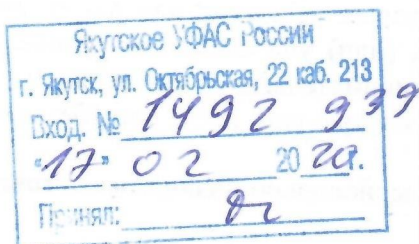 Якутское УФАС России
г. Якутск, ул. Октябрьская, 22 каб. 213
Вход. № 1492 939
"17" 02 2020г.
Принял: